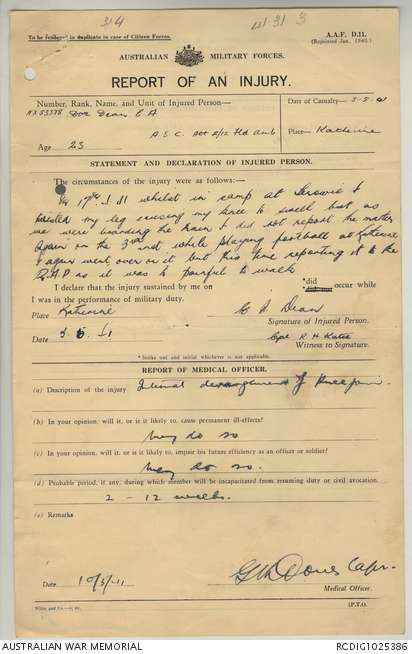 314
41 31 3
To be rendered in duplicate in case of Citizen Forces.
A.A.F. D.11.
(Reprinted Jan., 1940.)
AUSTRALIAN MILITARY FORCES.
REPORT OF AN INJURY.
Number, Rank, Name, and Unit of Injured Person—
Date of Casualty— 3-5-41
Dvr Dean C A
A.S.C. Att 2/12 Fld Amb
Place— Katherine
Age 23
STATEMENT AND DECLARATION OF INJURED PERSON.
The circumstances of the injury were as follows:—
whilst in camp at Terowie I
twisted my leg causing my knee to swell but as
we were boarding the train I did not report the matter
Again on the 3rd inst while playing football at Katherine
I again went over on it but this time reporting it to the
R.A.P as it was to painful to walk
I declare that the injury sustained by me on *did occur while
I was in the performance of military duty.
Place Katherine
C A Dean
Signature of Injured Person.
Date
Cpl R H
Witness to Signature.
* Strike out and initial whichever is not applicable.
REPORT OF MEDICAL OFFICER.
(a) Description of the injury Internal derangement of knee join.
(b) In your opinion, will it, or is it likely to, cause permanent ill-effects?
may do so
(c) In your opinion, will it, or is it likely to, impair his future efficiency as an officer or soldier?
may do so.
(d) Probable period, if any, during which member will be incapacitated from resuming duty or civil avocation.
2 - 12 weeks.
(e) Remarks
Date 10/5/41
Capt.
Medical Officer.
[P.T.O.
AUSTRALIAN WAR MEMORIAL
RCDIG1025386